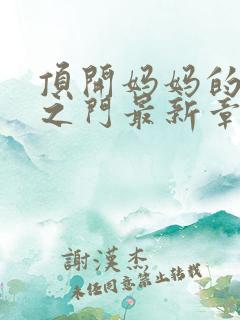 頂開妈妈的
之门最新章
謝漢杰
未经同意禁止转载